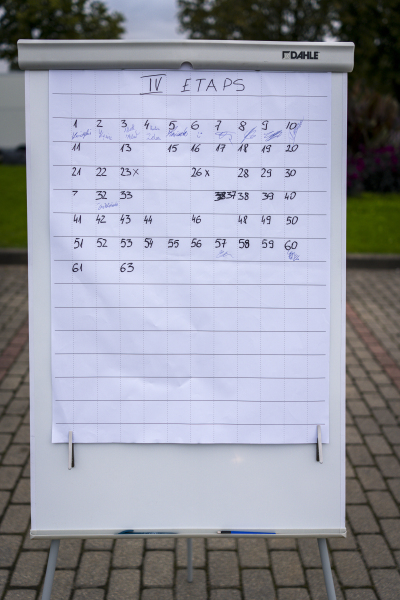 DAHLE
IV ETAPS
1 2 3 4 5 6 7 8 9 10
11 13 15 16 17 18 19 20
21 22 23x 26x 28 29 30
? 32 33 37 38 39 40
41 42 43 44 46 48 49 50
51 52 53 54 55 56 57 58 59 60
61 63